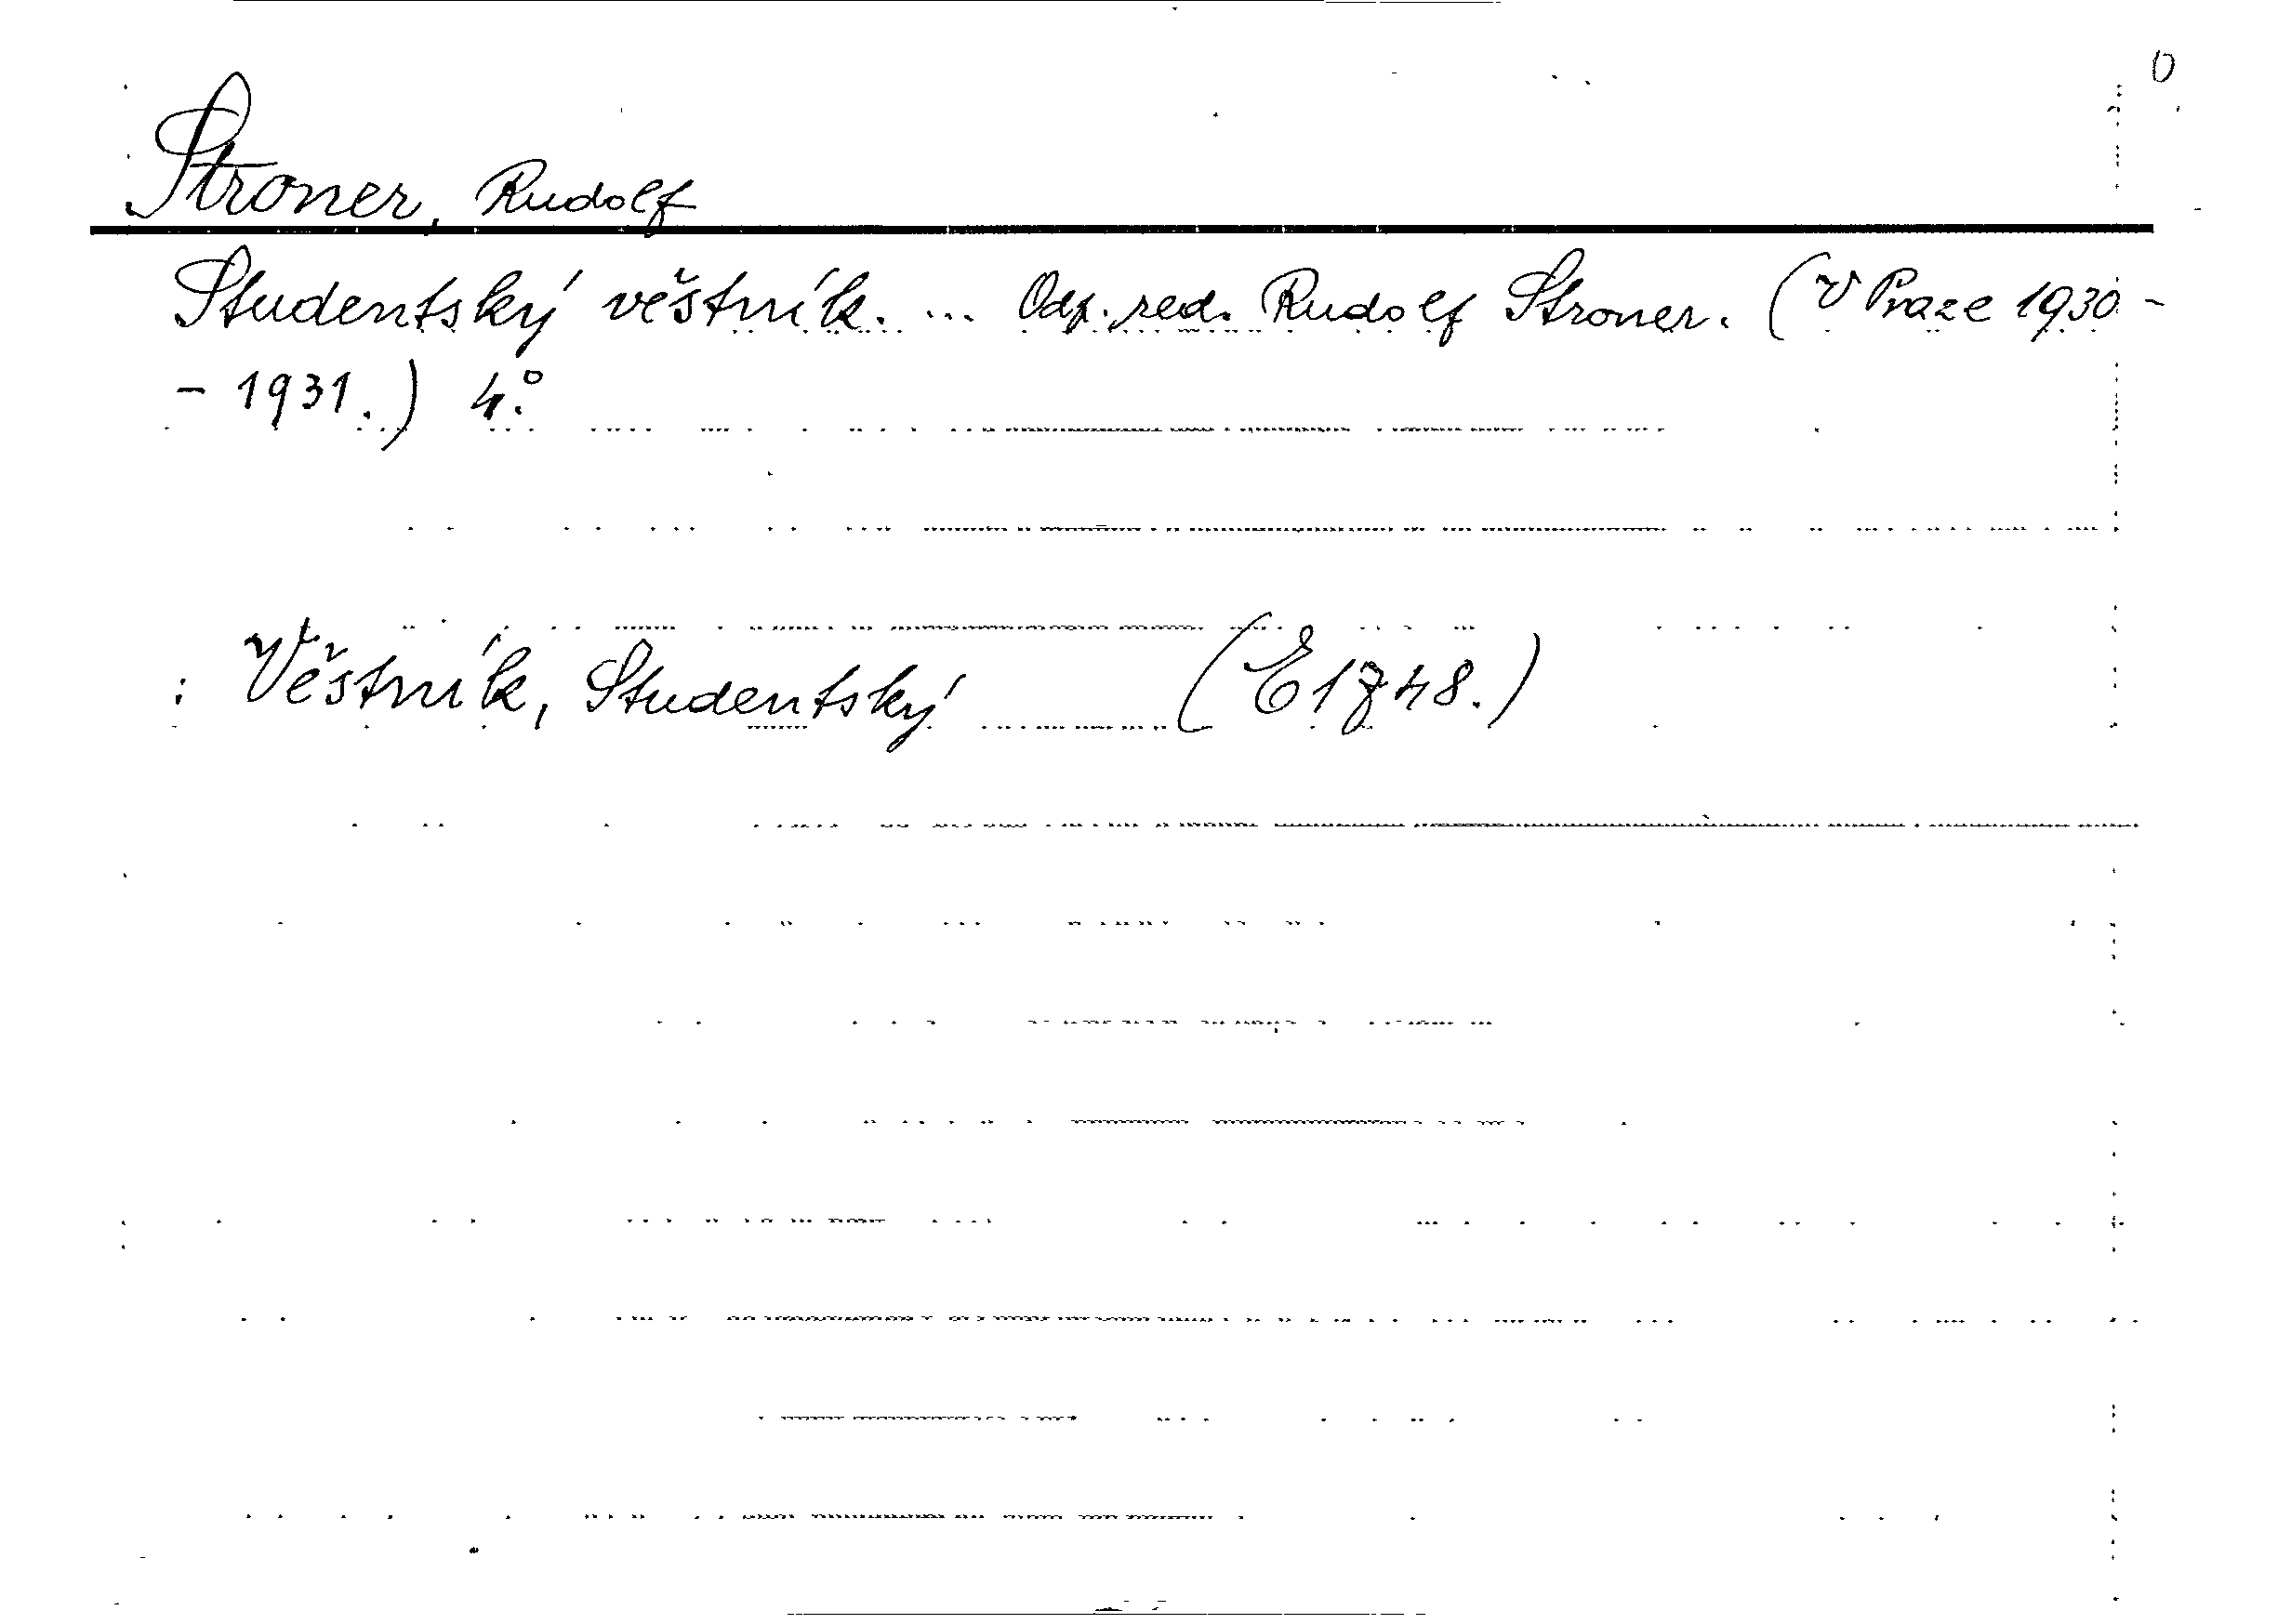 0
Stroner, Rudolf
Studentský věstník. ... Odp. red. Rudolf Stroner. (V Praze 1930-
- 1931.) 4°.
: Věstník, Studentský (E1748.)